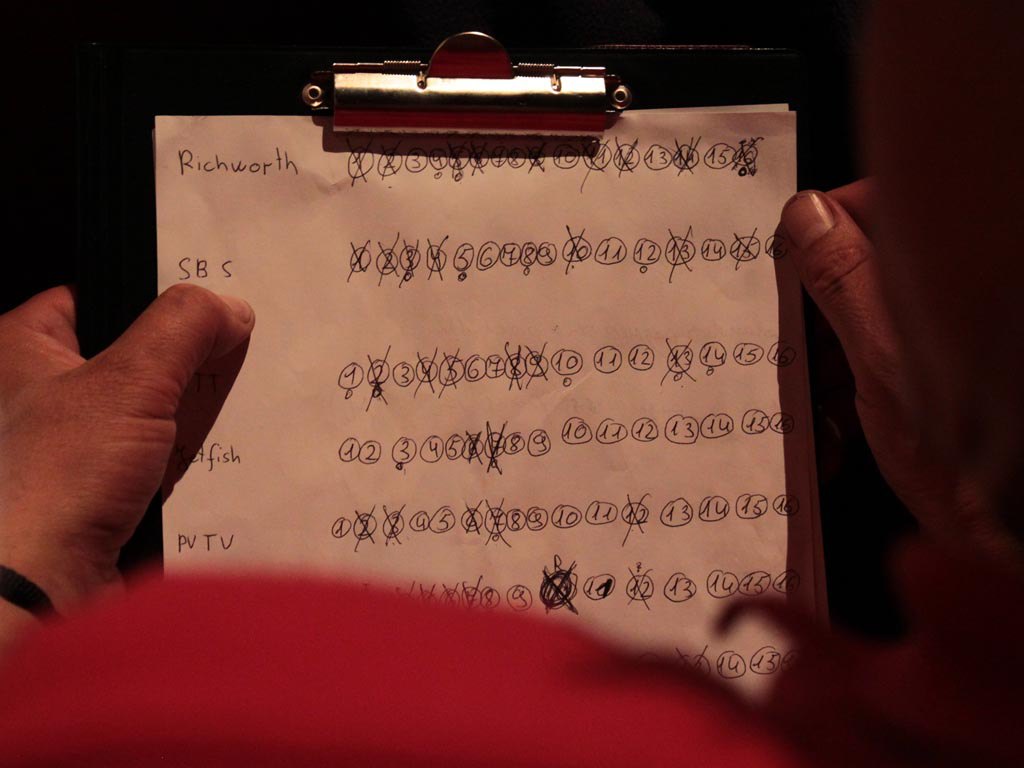 Richworth 1 2 3 4 5 6 7 8 9 10 11 12 13 14 15 16
SBS 1 2 3 4 5 6 7 8 9 10 11 12 13 14 15 16
TT 1 2 3 4 5 6 7 8 9 10 11 12 13 14 15 16
etfish 1 2 3 4 5 6 7 8 9 10 11 12 13 14 15 16
PVTV 1 2 3 4 5 6 7 8 9 10 11 12 13 14 15 16
8 9 11 12 13 14 15 16
14 15